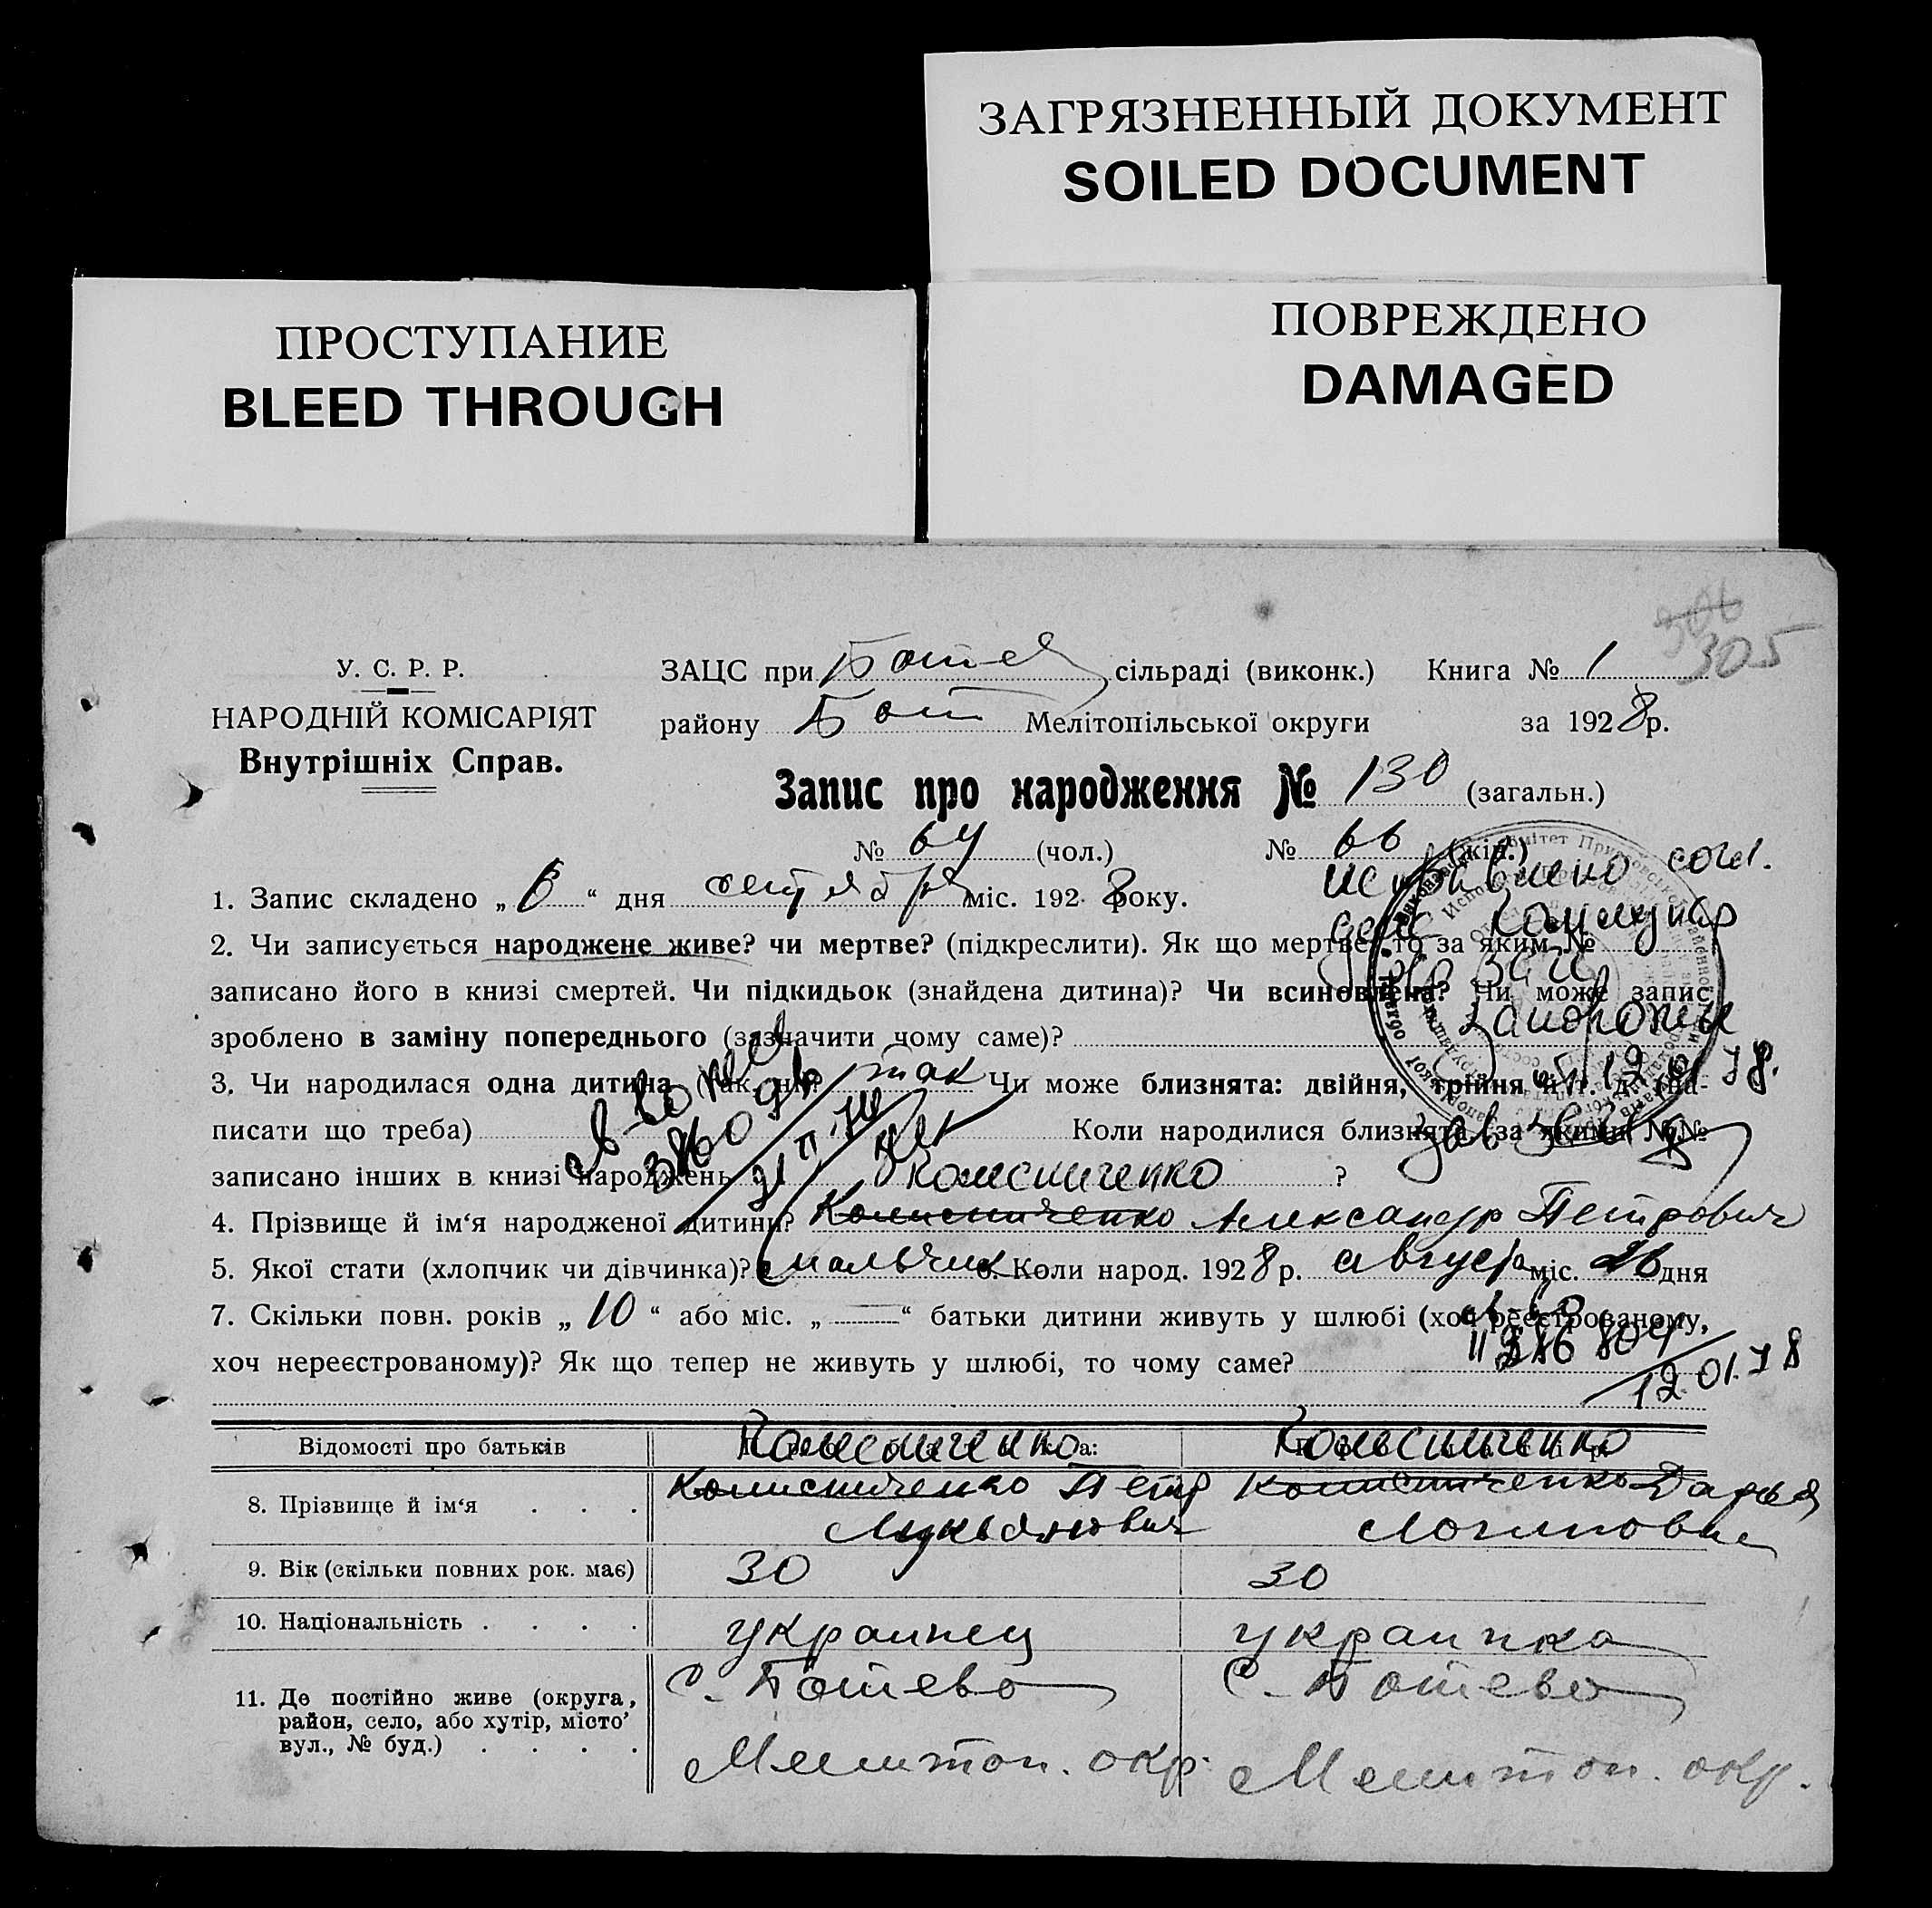 ЗАГРЯЗНЕННЫЙ ДОКУМЕНТ
SOILED DOCUMENT
ПРОСТУПАНИЕ
BLEED THROUGH
ПОВРЕЖДЕНО
DAMAGED
306
305
У. С. Р. Р.
НАРОДНІЙ КОМІСАРІЯТ
Внутрішніх Справ.
ЗАЦС при Ботев сільраді (виконк.) Книга № 1
району Бот Мелітопільської округи за 1928 р.
Запис про народження № 130 (загальн.)
№ 64 (чол.) № 66 (жін.)
исправлено согл.
1. Запис складено „ 6 “ дня сентября міс. 1928 року.
2. Чи записується народжене живе? чи мертве? (підкреслити). Як що мертве, то за яким №
записано його в книзі смертей. Чи підкидьок (знайдена дитина)? Чи всиновлена? Чи може запис
зроблено в заміну попереднього (зазначити чому саме)?
Запорожье
12 01 78.
3. Чи народилася одна дитина (так, ні)? так Чи може близнята: двійня, трійня й т. д. (на-
писати що треба) Коли народилися близнята (за якими №№
записано інших в книзі народжень ?
Колесниченко
4. Прізвище й ім‘я народженої дитини? Колисниченко Александр Петрович
5. Якої стати (хлопчик чи дівчинка)? мальчик 6. Коли народ. 1928 р. августа міс. 26 дня
7. Скільки повн. років „ 10 “ або міс. „ — “ батьки дитини живуть у шлюбі (хоч реєстрованому,
хоч нереєстрованому)? Як що тепер не живуть у шлюбі, то чому саме?
12 01. 78
Відомості про батьків Колесниченко Колесниченко
8. Прізвище й ім‘я . . . Колисниченко Петр Колисниченко Дарья
Лукьянович Логиновна
9. Вік (скільки повних рок. має) 30 30
10. Національність . . . . украинец украинка
11. Де постійно живе (округа, с. Ботево с. Ботево
район, село, або хутір, місто’
вул., № буд.) . . . . Мелитоп. окр. Мелитоп. окр.